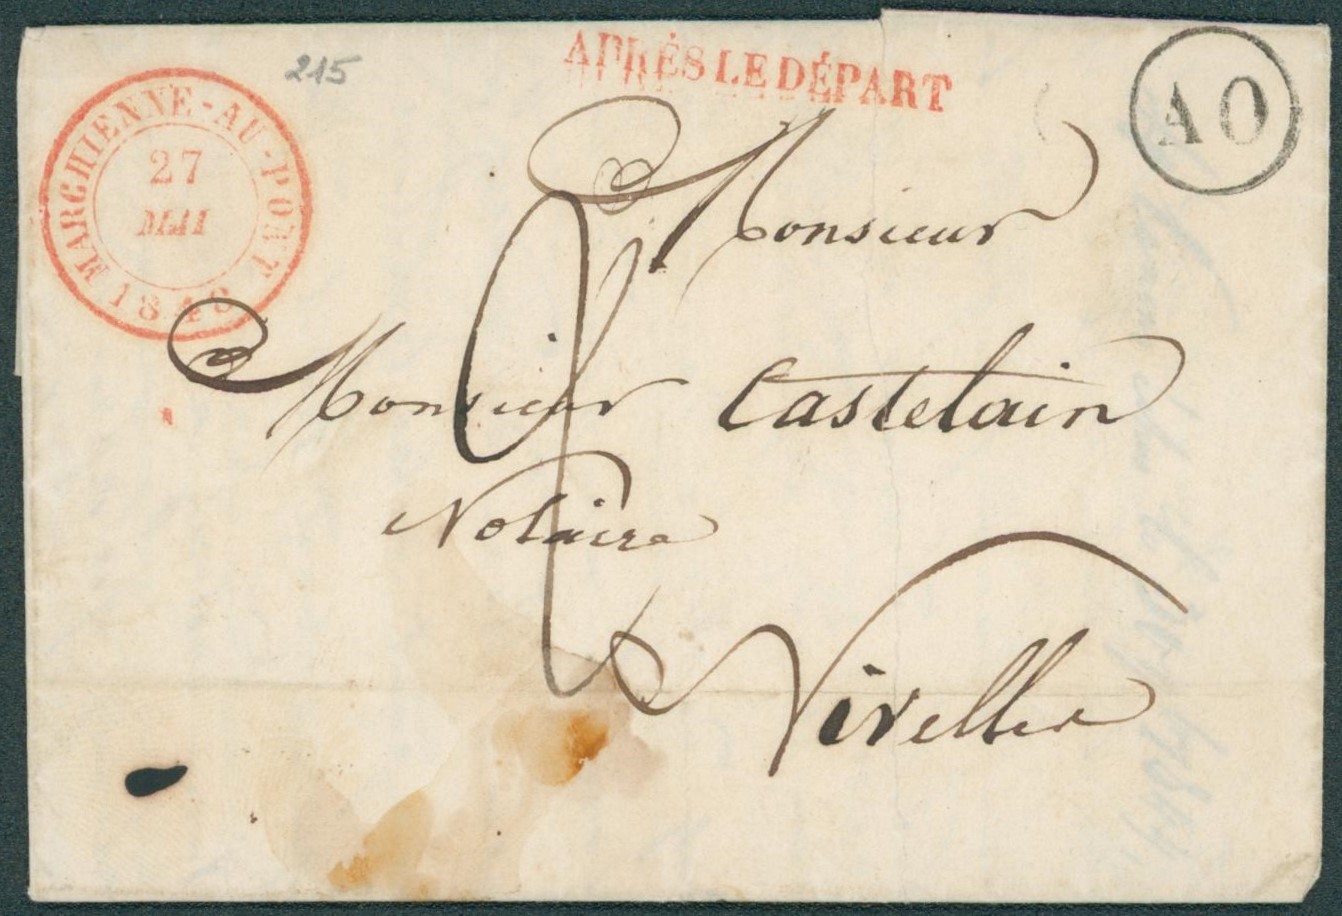 215
APRÉS LE DÉPART
AO
MARCHIENNE-AU-PONT
27
MAI
1846
Monsieur
Monsieur Castelain
Notaire
Nivelles